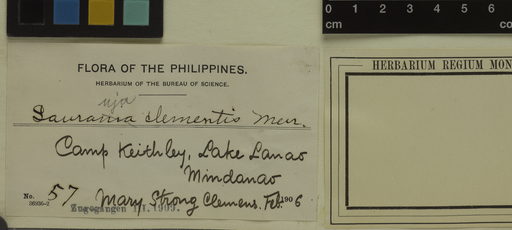 0 1 2 3 4 5 6
cm
FLORA OF THE PHILIPPINES.
HERBARIUM OF THE BUREAU OF SCIENCE.
uja
Saurauia clementis Merr.
Camp Keithley, Lake Lanao
Mindanao
No. 57 Mary Strong Clemens. Feb. 1906
Zugegangen 1909.
HERBARIUM REGIUM MON